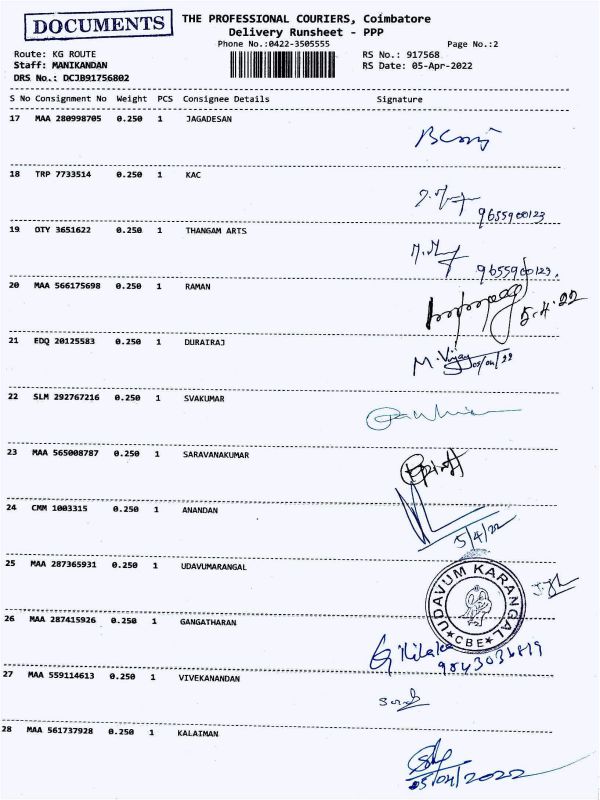 DOCUMENTS
THE PROFESSIONAL COURIERS, Coimbatore
Delivery Runsheet - PPP
Phone No.:0422-3505555 Page No.:2
Route: KG ROUTE RS No.: 917568
Staff: MANIKANDAN RS Date: 05-Apr-2022
DRS No.: DCJB91756802
S No Consignment No Weight PCS Consignee Details Signature
17 MAA 280998705 0.250 1 JAGADESAN
18 TRP 7733514 0.250 1 KAC
9655900123
19 OTY 3651622 0.250 1 THANGAM ARTS
9655900123.
20 MAA 566175698 0.250 1 RAMAN
5.4.22
21 EDQ 20125583 0.250 1 DURAIRAJ
M. Vijay 05/04/22
22 SLM 292767216 0.250 1 SVAKUMAR
23 MAA 565008787 0.250 1 SARAVANAKUMAR
24 CMM 1003315 0.250 1 ANANDAN
5/4/22
25 MAA 287365931 0.250 1 UDAVUMARANGAL
UDAVUM KARANGAL
* CBE *
26 MAA 287415926 0.250 1 GANGATHARAN
27 MAA 559114613 0.250 1 VIVEKANANDAN
28 MAA 561737928 0.250 1 KALAIMAN
05/04/2022